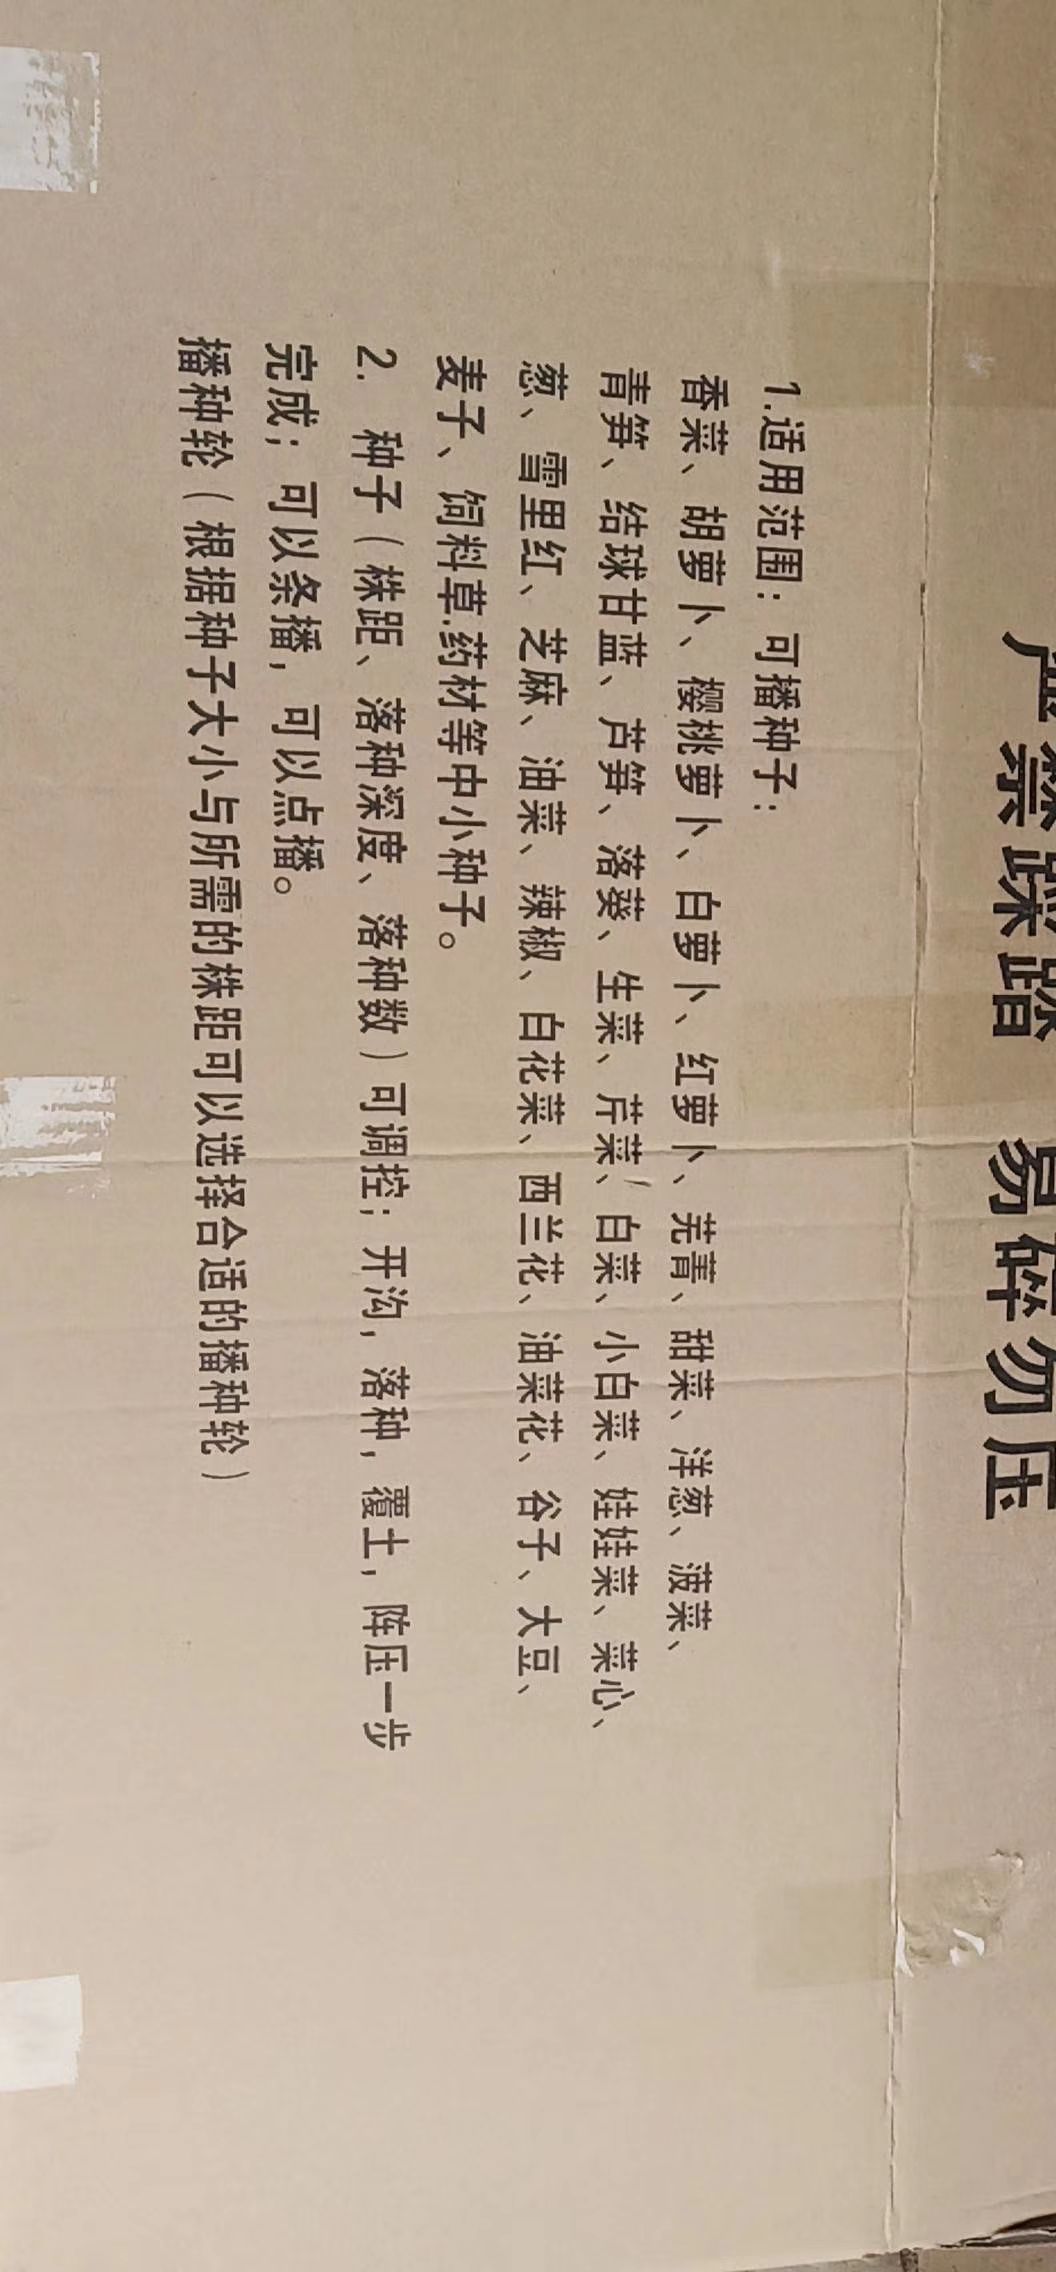 严禁踩踏 易碎勿压
1.适用范围：可播种子：
香菜、胡萝卜、樱桃萝卜、白萝卜、红萝卜、芜菁、甜菜、洋葱、菠菜、
青笋、结球甘蓝、芦笋、落葵、生菜、芹菜、白菜、小白菜、娃娃菜、菜心、
葱、雪里红、芝麻、油菜、辣椒、白花菜、西兰花、油菜花、谷子、大豆、
麦子、饲料草.药材等中小种子。
2. 种子（株距、落种深度、落种数）可调控；开沟，落种，覆土，阵压一步
完成；可以条播，可以点播。
播种轮（根据种子大小与所需的株距可以选择合适的播种轮）